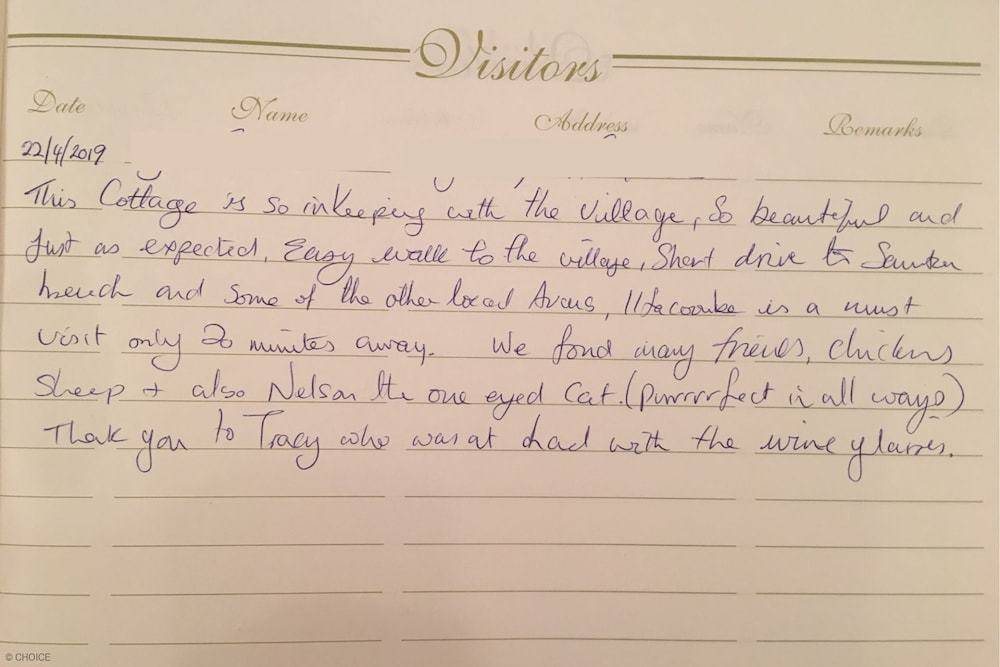 Visitors
Date Name Address Remarks
22/4/2019
This Cottage is so inkeeping with the village, So beautiful and
Just as expected, Easy walk to the village, Short drive to Saunton
beach and some of the other local Areas, Ilfacombe is a must
visit only 20 minutes away. We fond many friends, chickens
Sheep + also Nelson the one eyed Cat. (purrrrfect in all ways)
Thak you to Tracy who was at had with the wine glasses.
© CHOICE